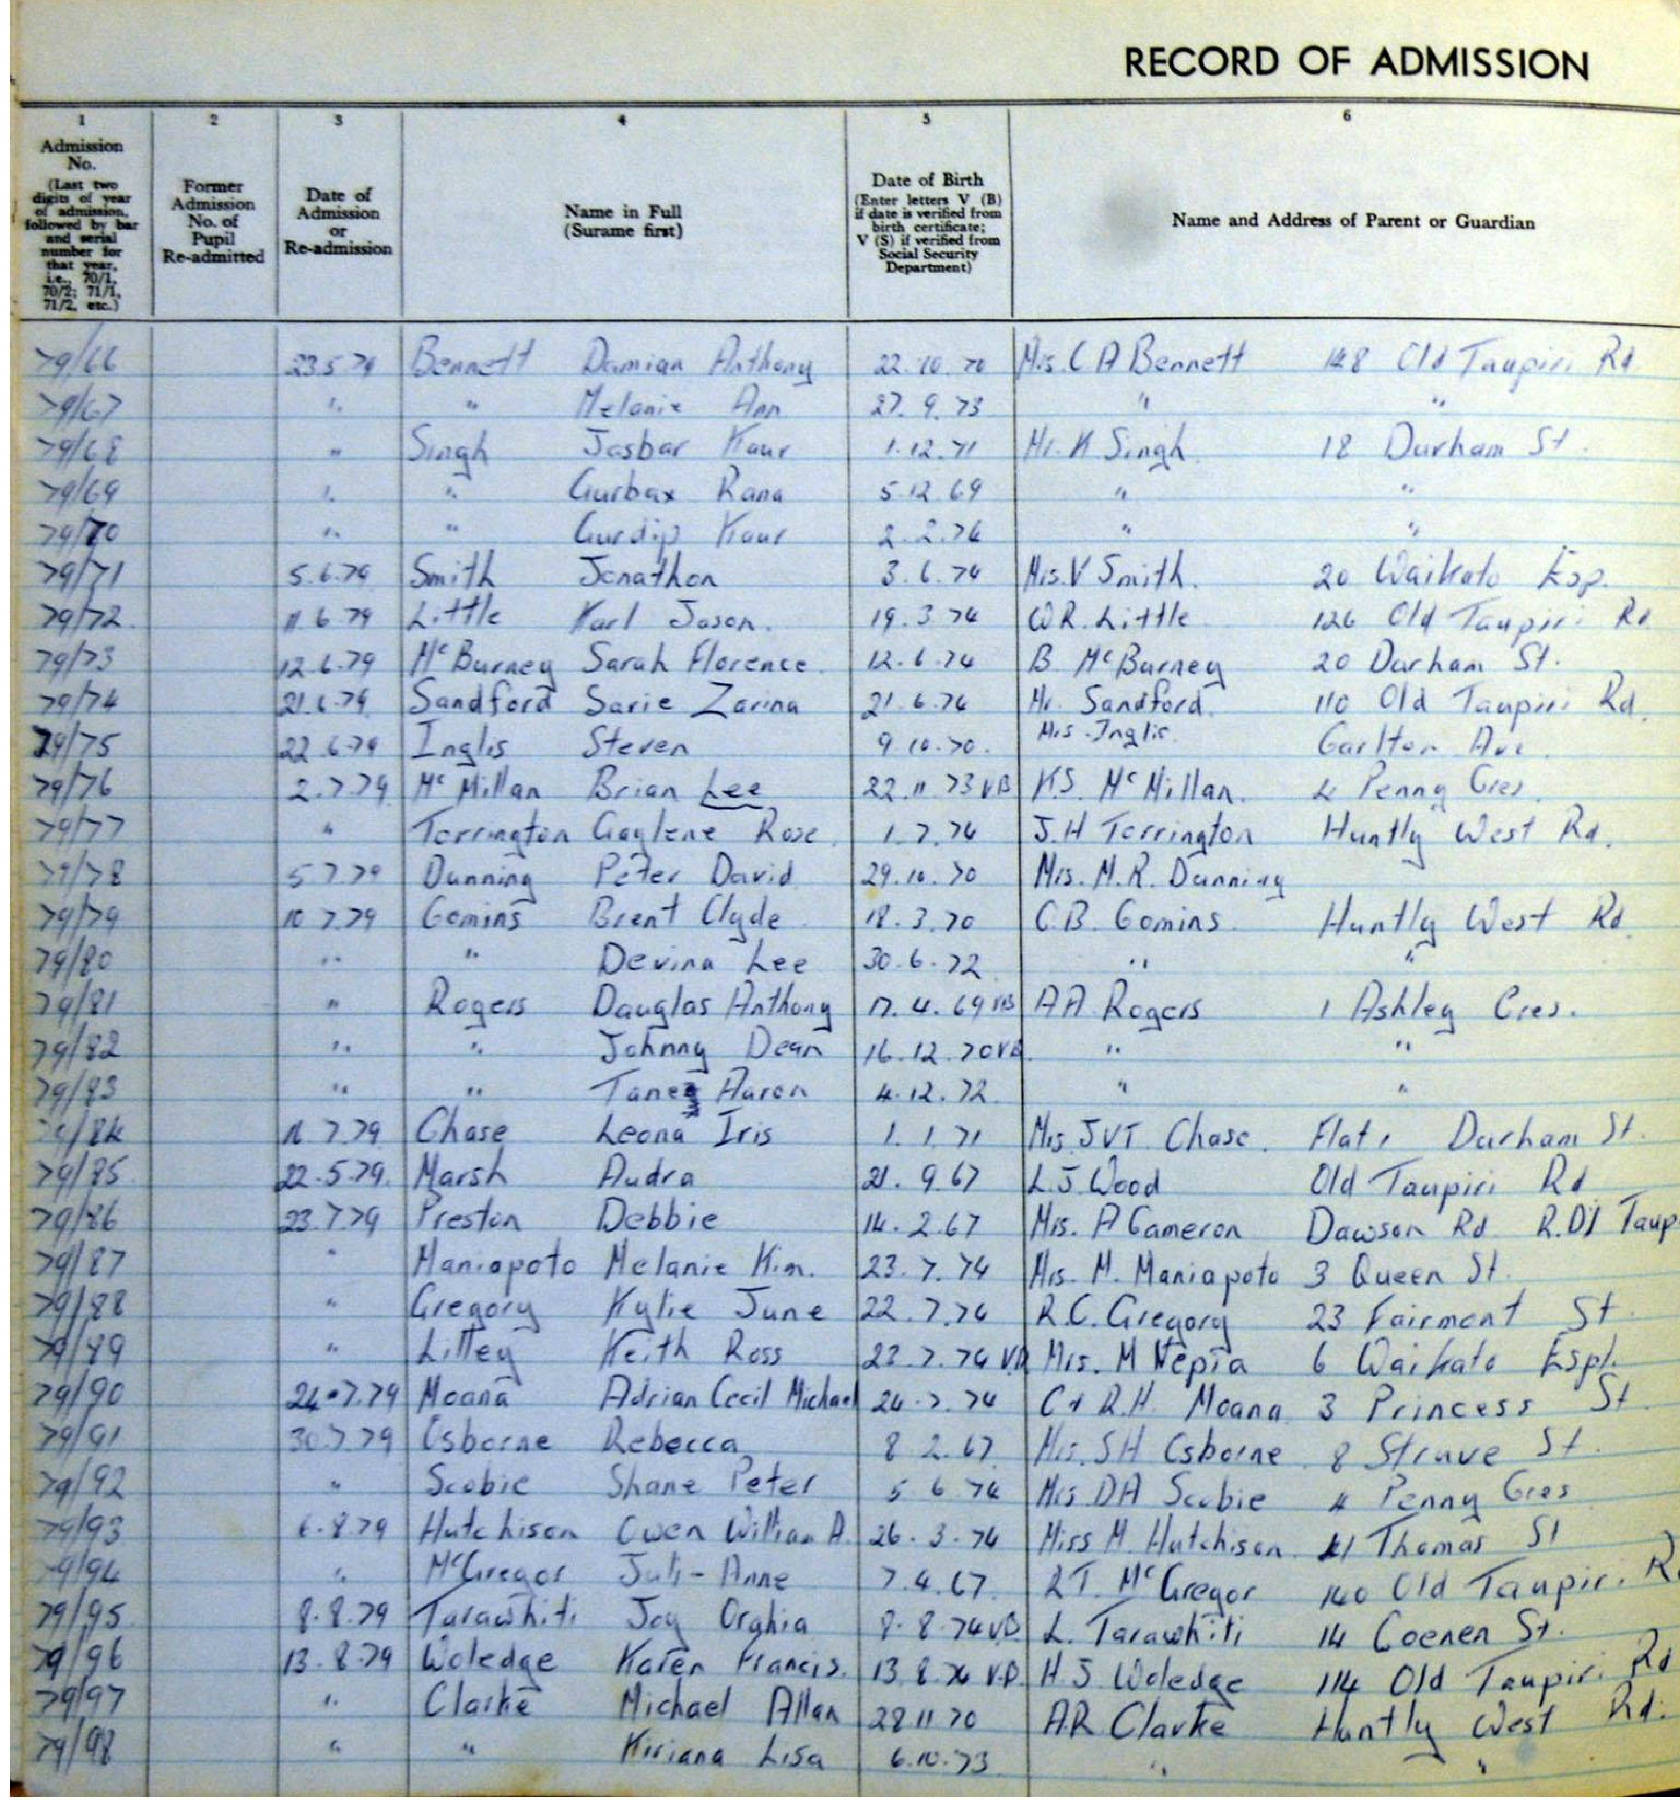 RECORD OF ADMISSION
1 2 3 4 5 6
Admission No. (Last two digits of year of admission, followed by bar and serial number for that year, i.e., 70/1, 70/2; 71/1, 71/2, etc.)
Former Admission No. of Pupil Re-admitted
Date of Admission or Re-admission
Name in Full (Surame first)
Date of Birth (Enter letters V (B) if date is verified from birth certificate; V (S) if verified from Social Security Department)
Name and Address of Parent or Guardian
79/66 23.5.79 Bennett Damian Anthony 22.10.70 Mrs. C A Bennett 148 Old Taupiri Rd
79/67 " " Melanie Ann 27.9.73 " "
79/68 " Singh Jasbar Kaur 1.12.71 Mr. K Singh 18 Durham St.
79/69 " " Gurbax Rana 5.12.69 " "
79/70 " " Gurdip Kaur 2.2.74 " "
79/71 5.6.79 Smith Jonathon 3.6.74 Mrs. V Smith. 20 Waikato Esp.
79/72 11.6.79 Little Karl Jason. 19.3.74 W.R. Little 126 Old Taupiri Rd
79/73 12.6.79 McBurney Sarah Florence. 12.6.74 B McBurney 20 Durham St.
79/74 21.6.79 Sandford Sarie Zarina 21.6.74 Mr. Sandford. 110 Old Taupiri Rd.
79/75 22.6.79 Inglis Steven 9.10.70. Mrs. Inglis. Carlton Ave
79/76 2.7.79 McMillan Brian Lee 22.11.73 VB K.S. McMillan. 4 Penny Cres
79/77 " Torrington Gaylene Rose 1.7.74 J.H Torrington Huntly West Rd.
79/78 5.7.79 Dunning Peter David 29.10.70 Mrs. M.R. Dunning
79/79 10.7.79 Comins Brent Clyde 18.3.70 C.B. Comins Huntly West Rd.
79/80 " " Devina Lee 30.6.72 " "
79/81 " Rogers Douglas Anthony 17.4.69 VB A A Rogers 1 Ashley Cres.
79/82 " " Johnny Dean 16.12.70 VB " "
79/83 " " Tane Aaron 4.12.72 " "
79/84 16.7.79 Chase Leona Iris 1.1.71 Mrs J V T. Chase. Flat 1 Durham St.
79/85 22.5.79. Marsh Audra 21.9.67 L.J. Wood Old Taupiri Rd
79/86 23.7.79 Preston Debbie 14.2.67 Mrs. A Cameron Dawson Rd R.D.1 Taup
79/87 " Maniapoto Melanie Kim. 23.7.74 Mrs. M. Maniapoto 3 Queen St.
79/88 " Gregory Kylie June 22.7.74 R.C. Gregory 23 Fairmont St
79/89 " Lilley Keith Ross 23.7.74 V.B Mrs. M Nepia 6 Waikato Espl.
79/90 24.7.79 Moana Adrian Cecil Michael 24.7.74 C & R.H. Moana 3 Princess St
79/91 30.7.79 Osborne Rebecca 8.2.67 Mrs. S H Osborne 8 Struve St.
79/92 " Scobie Shane Peter 5.6.74 Mrs D A Scobie 4 Penny Cres
79/93 6.8.79 Hutchison Owen William A. 26.3.74 Miss M. Hutchison 41 Thomas St
79/94 " McGregor Juli-Anne 7.4.67 R T. McGregor 140 Old Taupiri R
79/95 8.8.79 Tarawhiti Joy Orahia 8.8.74 VB. L. Tarawhiti 14 Coenen St.
79/96 13.8.79 Woledge Karen Francis. 13.8.74 V.B. H J Woledge 114 Old Taupiri Rd
79/97 " Clarke Michael Allan 28.11.70 A.R Clarke Huntly West Rd.
79/98 " " Kiriana Lisa 6.10.73 " "